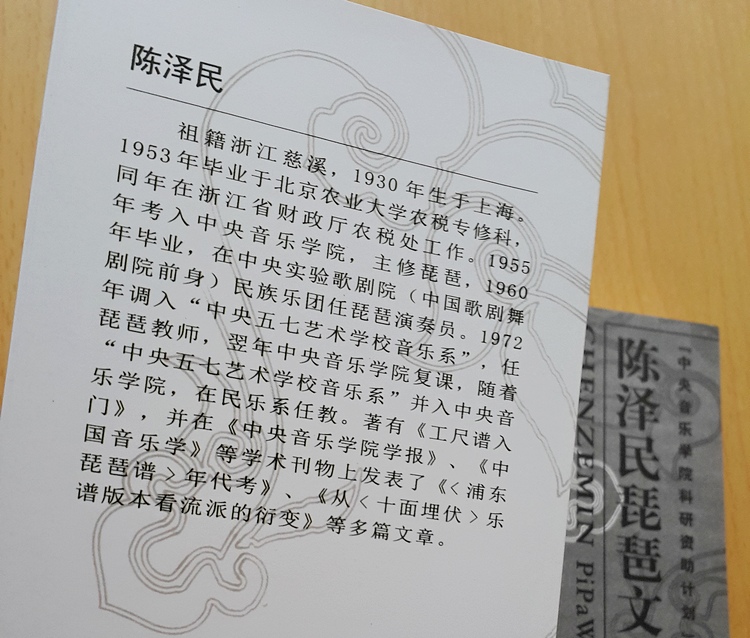 陈泽民
祖籍浙江慈溪，1930年生于上海。
1953年毕业于北京农业大学农税专修科，
同年在浙江省财政厅农税处工作。1955
年考入中央音乐学院，主修琵琶，1960
年毕业，在中央实验歌剧院（中国歌剧舞
剧院前身）民族乐团任琵琶演奏员。1972
年调入“中央五七艺术学校音乐系”，任
琵琶教师，翌年中央音乐学院复课，随着
“中央五七艺术学校音乐系”并入中央音
乐学院，在民乐系任教。著有《工尺谱入
门》，并在《中央音乐学院学报》、《中
国音乐学》等学术刊物上发表了《〈浦东
琵琶谱〉年代考》、《从〈十面埋伏〉乐
谱版本看流派的衍变》等多篇文章。
「中央音乐学院科研资助计划
陈泽民琵琶文
CHENZEMIN PiPa W